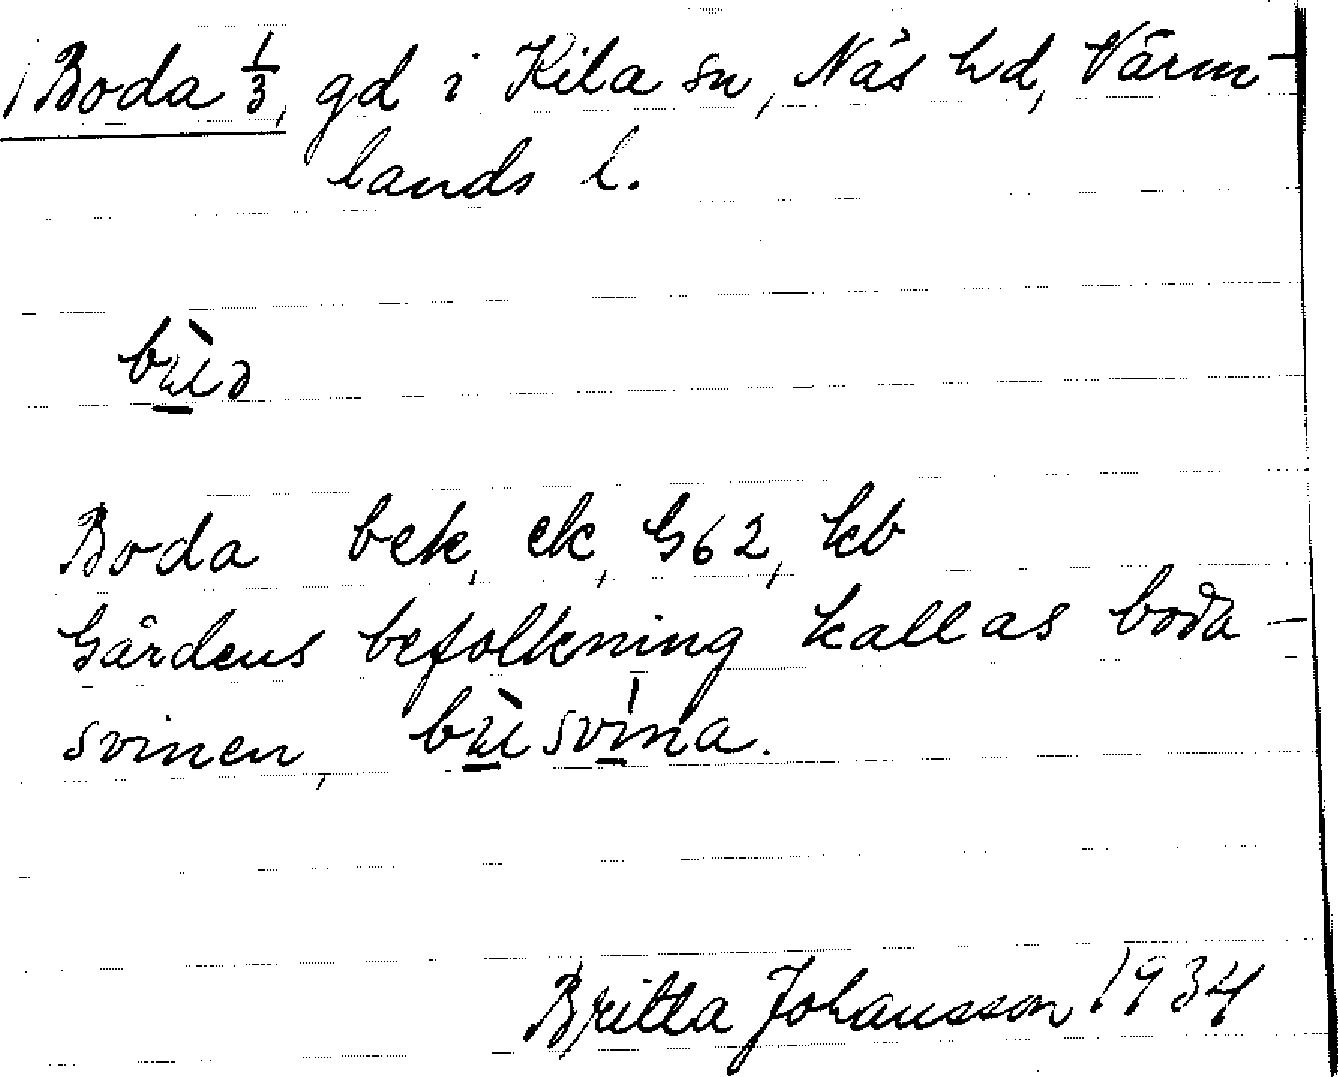 Boda 1/3, gd i Kila sn, Näs hd, Värm-
lands l.
Boda bek, ek, G62, kb
Gårdens befolkning kallas boda-
svinen,
Britta Johansson 1934